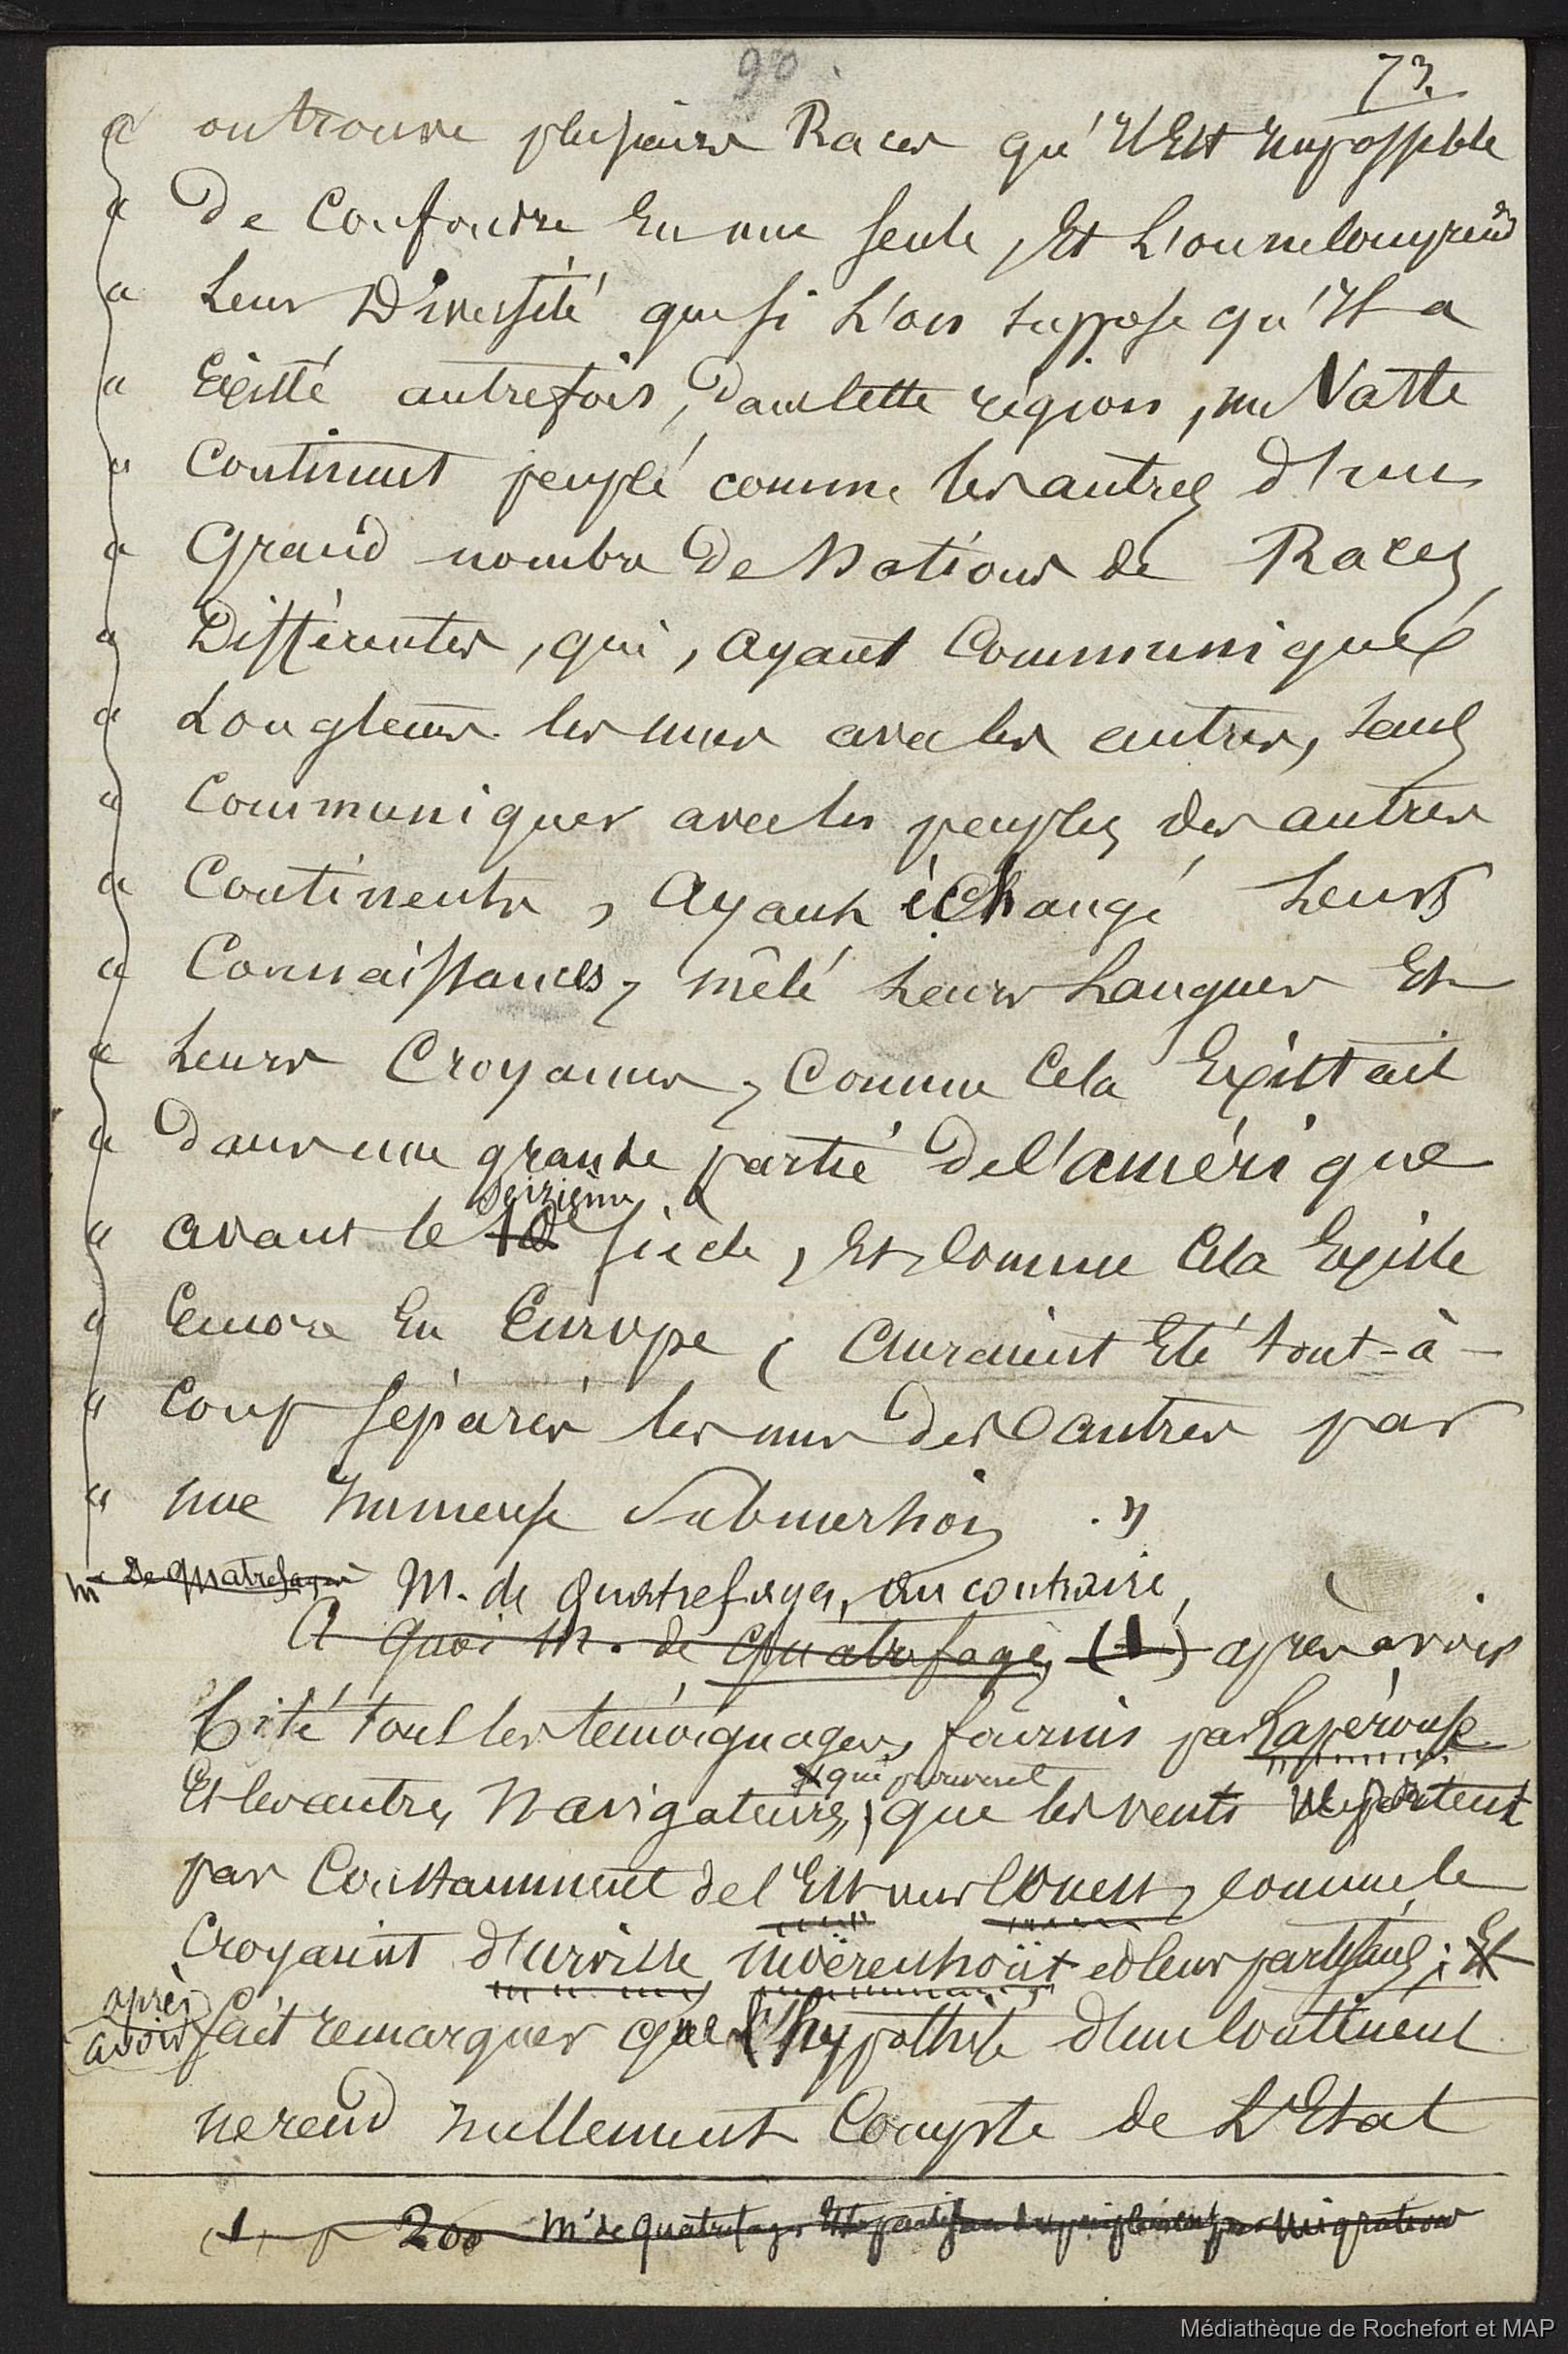 90.
73.
" on trouve plusieurs Races qu'il Est impossible
" De Confondre En une seule, Et L'on ne comprend
" Leur Diversité que si L'on suppose qu'il a
" Existé autrefois, Dans cette région, un Vaste
" Continent peuplé comme les autres d'un
" Grand nombre De Nations de Races
" Différentes, qui, ayant Communiqué
" Longtems les unes avec les autres, sans
" Communiquer avec les peuples des autres
" Continents, Ayant échangé Leurs
" Connaissances, mêlé Leurs Langues Et
" Leurs Croyances, Comme Cela Existait
" Dans une grande partie De l'amérique
seizième
" avant le 16e siècle, Et comme Cela Existe
" Encore En Europe, Auraient Eté tout-à-
" Coup séparés les uns des autres par
" une immense Submersion. "
Mr De Quatrefages M. de Quatrefages, au contraire,
A quoi M. de Quatrefages (1) après avoir
Cité tous les témoignages, fournis par Lapérouse
qui prouvent
Et les autres Navigateurs, que les vents ne portent
pas Constamment de l'Est vers l'Ouest, comme le
Croyaient d'Urville, Moërenhoüt et leurs partisans; Et
après
avoir fait remarquer que l'hypothèse d'un Continent
ne rend nullement Compte de L'Etat
(1) p 200 Mr de Quatrefages Est partisan du peuplement par migrations
Médiathèque de Rochefort et MAP